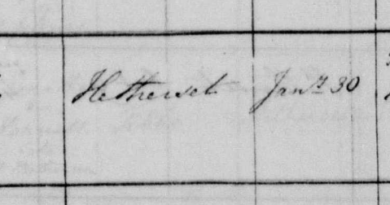 Hethersett Janʸ 30